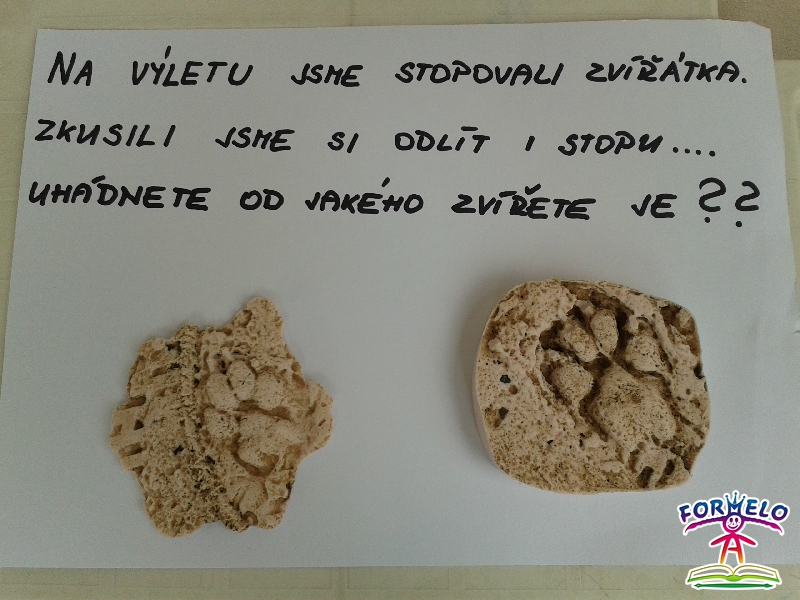 NA VÝLETU JSME STOPOVALI ZVÍŘÁTKA.
ZKUSILI JSME SI ODLÍT I STOPU....
UHÁDNETE OD JAKÉHO ZVÍŘETE JE ??
FORMELO